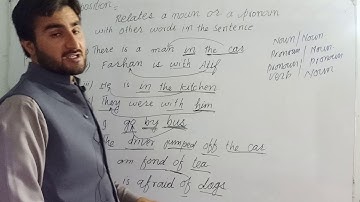 position:
Relates a noun or a pronoun
with other words in the sentence
There is a man in the car
Farhan is with Atif
Noun / Noun
Pronoun / Noun
Pronoun / Pronoun
Verb / Noun
is in the kitchen
They were with him
I go by bus
The driver jumped off the car
am fond of tea
is afraid of dogs